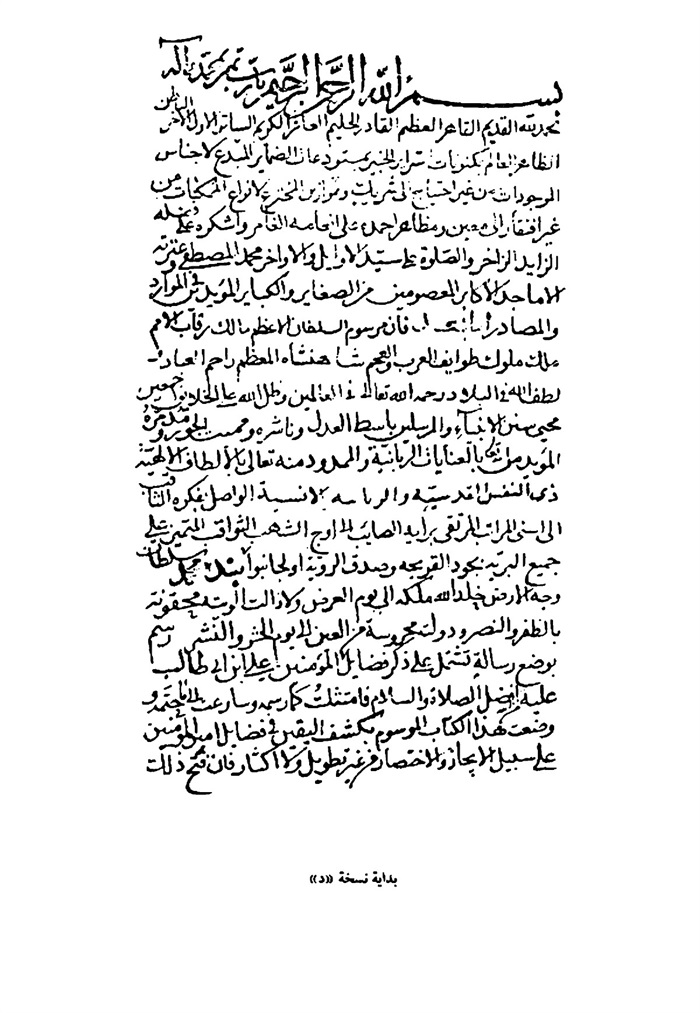 بسم الله الرحمن الرحيم رب تمم بمحمد وآله
نحمد لله القديم القاهر العظيم القادر الحليم الغافر الكريم الساتر الاول الاخر الباطن
الظاهر العالم بمكنونات السراير الخبير بمستودعات الضماير المبدع لاجناس
الموجودات من غير احتياج الى شريك وموازر المخترع لانواع الممكنات من
غير افتقار الى معين ومظاهر احمده على انعامه الغامر واشكره على فضله
الزايد الزاخر والصلوة على سيد الاوايل والاواخر محمد المصطفى وعترته
الاماجد الاكابر المعصومين من الصغاير والكباير المؤيدين في الموارد
والمصادر اما بعد فان مرسوم السلطان الاعظم مالك رقاب الامم
ملك ملوك طوايف العرب والعجم شاهنشاه المعظم راحم العباد
لطف الله في البلاد رحمه الله تعالى في العالمين وظل الله على الخلايق اجمعين
محيي سنن الانبياء والمرسلين باسط العدل وناشره ومميت الجور ومدمره
المؤيد من بالعنايات الربانية والممدود منه تعالى بالالطاف الالهية
ذي النفس القدسية والرياسه الانسية الواصل بفكره الثاقب
الى اسنى المراتب المرتقى برايه الصايب الى اوج الشهب الثواقب المتميز على
جميع البرية بجود القريحه وصدق الروية اولجايتو محمد سلطان
وجه الارض خلد الله ملكه الى يوم العرض ولا زالت الويته محفوفة
بالظفر والنصر ودولته محروسة من الغير الى يوم الحشر والنشر رسم
بوضع رسالة تشتمل على ذكر فضايل امير المؤمنين علي ابن ابي طالب
عليه افضل الصلاة والسلام فامتثلت كما رسمه وسارعت الى ما حتمه و
وضعت هذا الكتاب الموسوم بكشف اليقين في فضايل امير المؤمنين
على سبيل الايجاز والاختصار من غير تطويل ولا اكثار فان فتح ذلك
بداية نسخة «د»